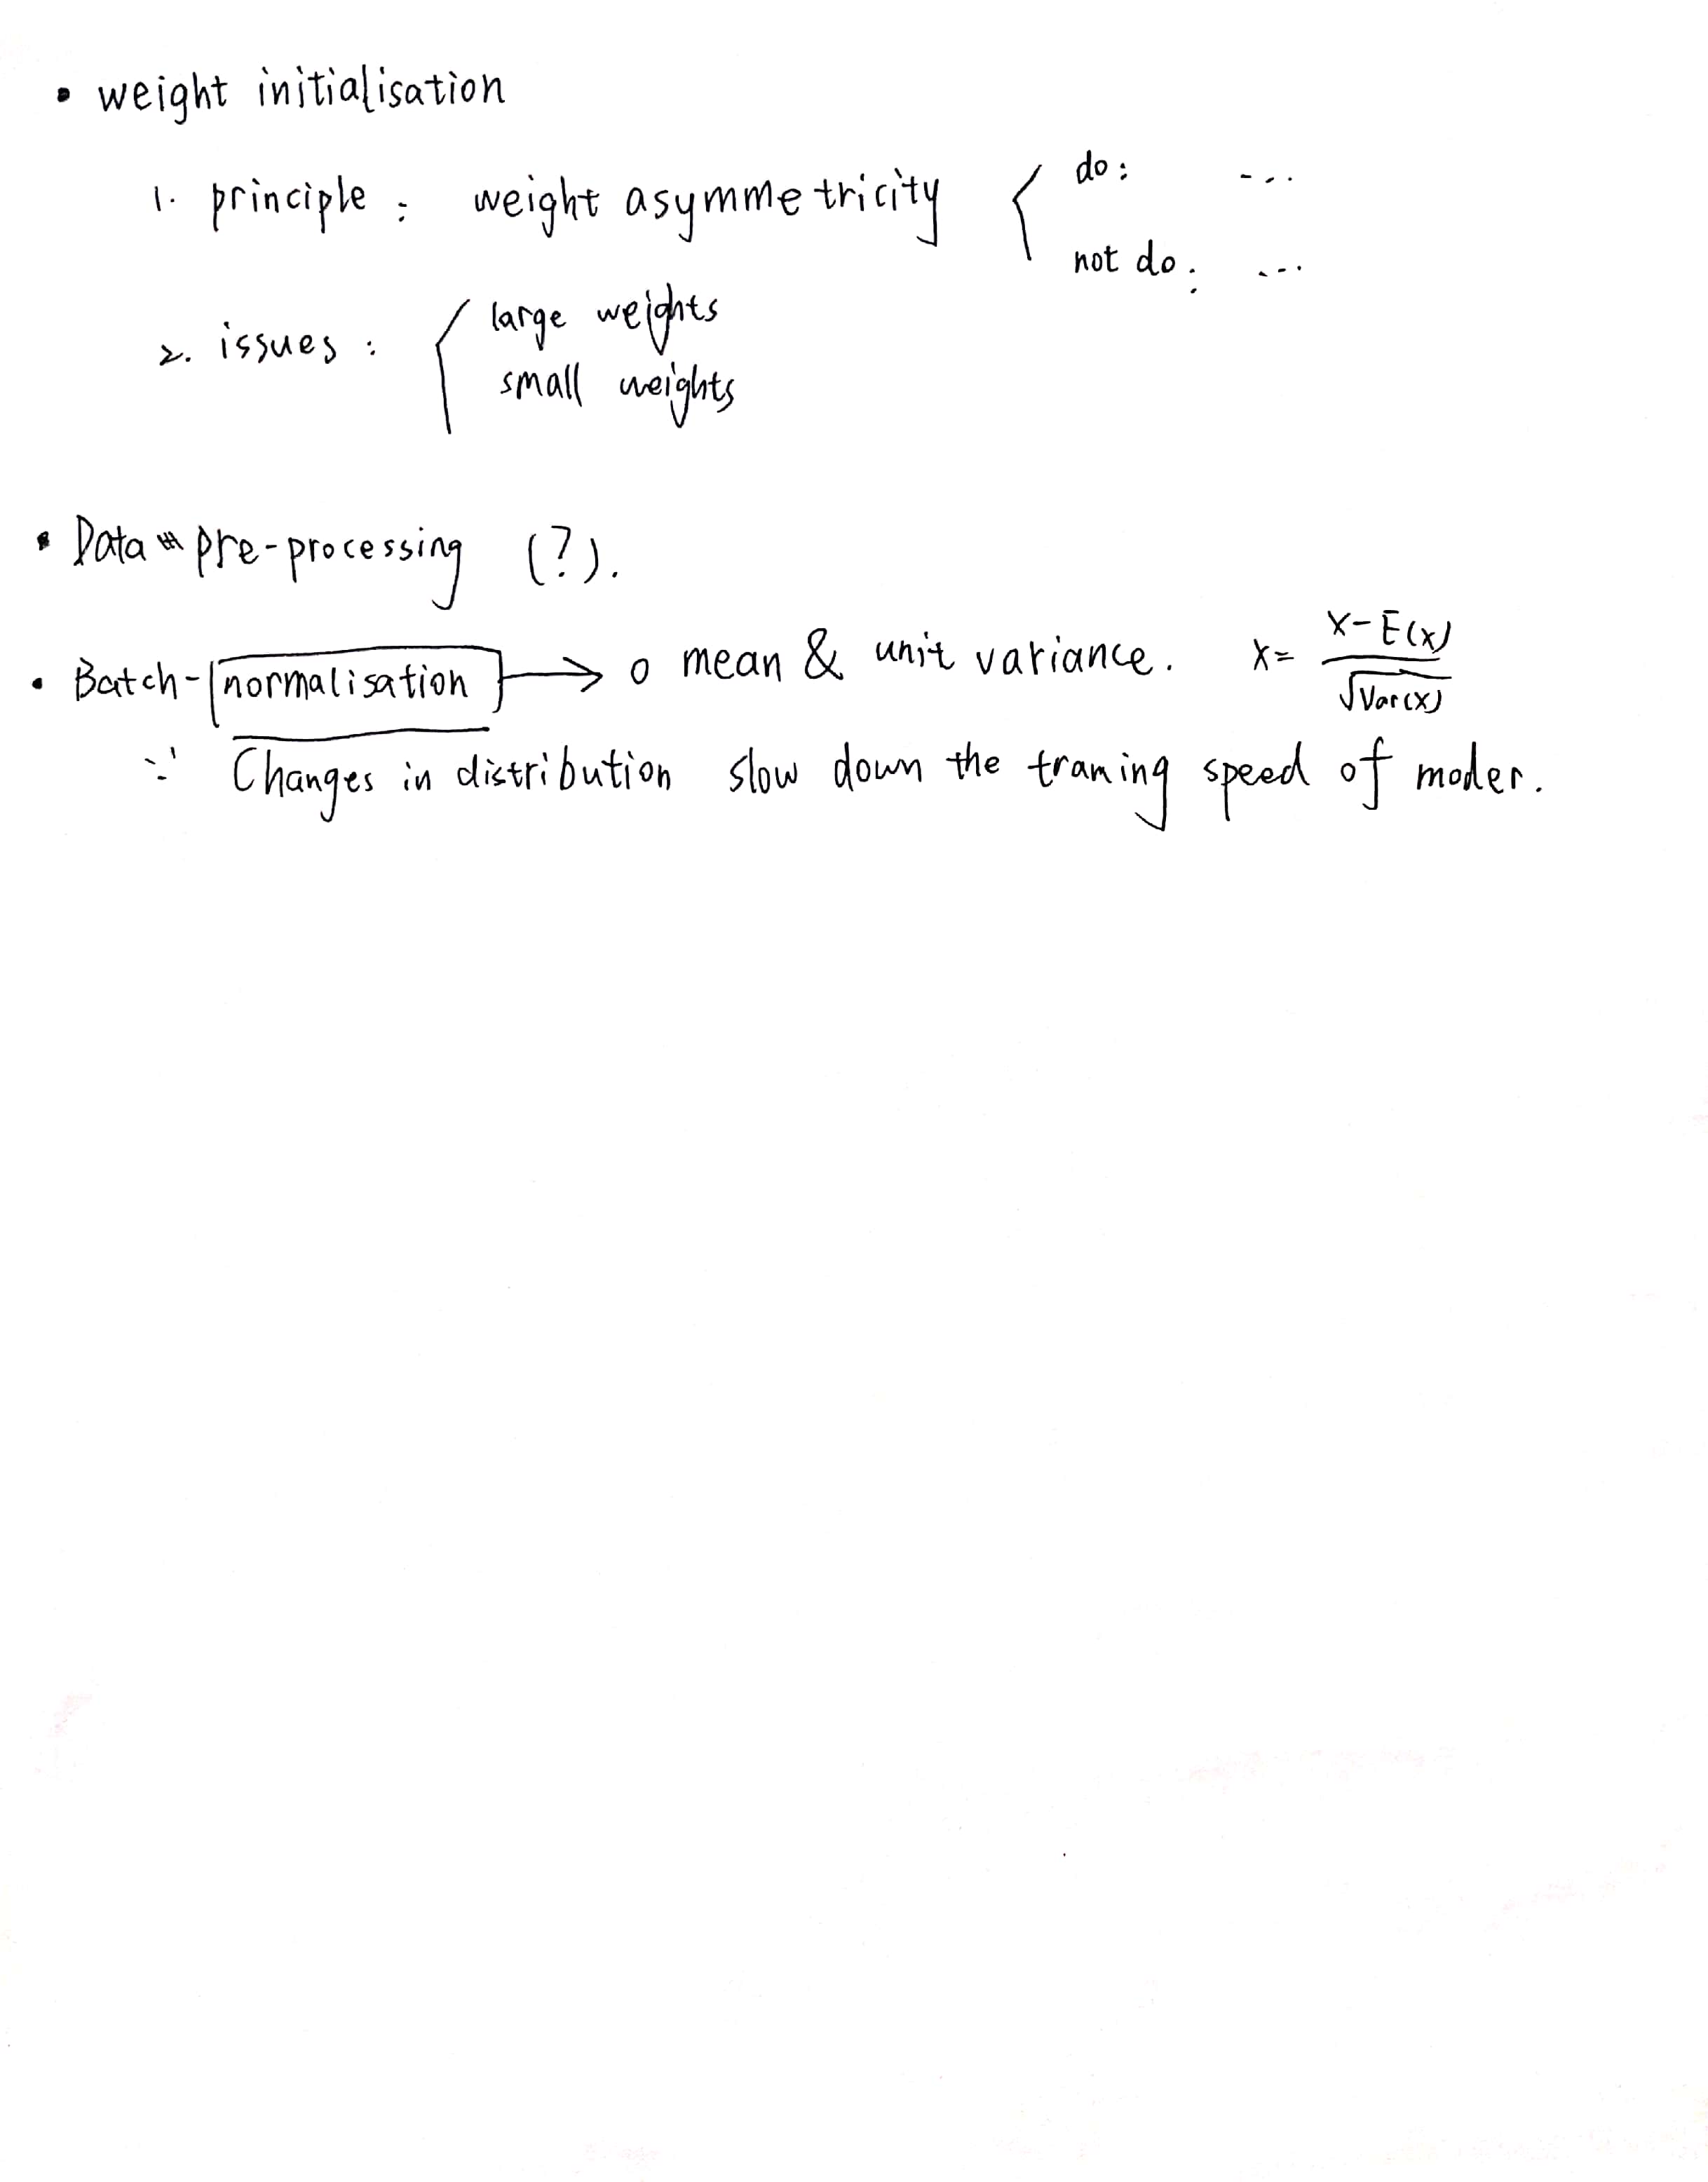 • weight initialisation
1. principle : weight asymmetricity { do : ---
not do : ---
2. issues : { large weights
small weights
• Data pre-processing (?).
• Batch-normalisation → 0 mean & unit variance. x = (x - E(x)) / √Var(x)
∵ Changes in distribution slow down the traning speed of moder.